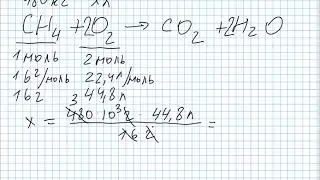 CH₄ + 2O₂ → CO₂ + 2H₂O
1 моль 2 моль
16 г/моль 22,4 л/моль
16 г 44,8 л
x = 480 · 10³ г · 44,8 л / 16 г =
3